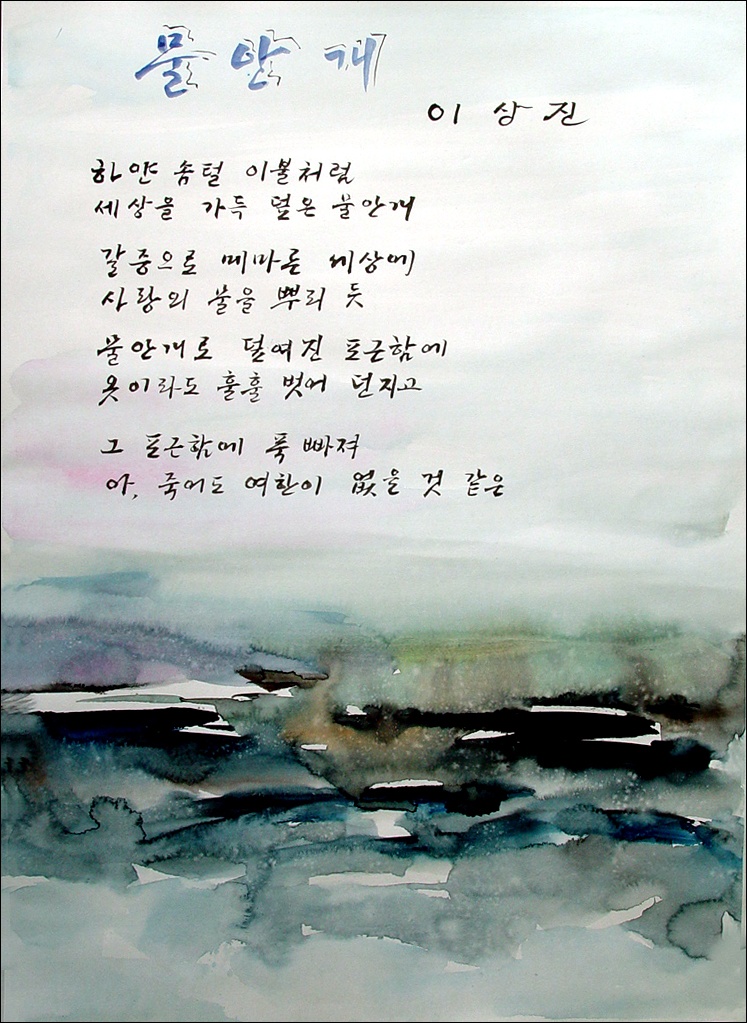 물안개
이상진
하얀 솜털 이불처럼
세상을 가득 덮은 물안개
갈증으로 메마른 세상에
사랑의 물을 뿌리 듯
물안개로 덮여진 포근함에
옷이라도 훌훌 벗어 던지고
그 포근함에 푹 빠져
아, 죽어도 여한이 없을 것 같은